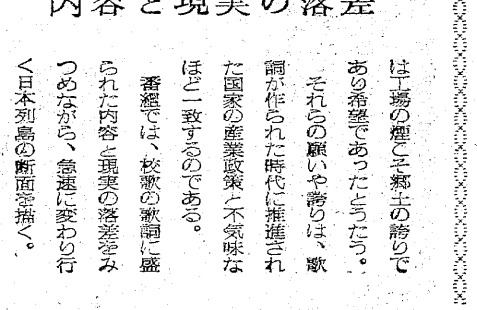 内容と現実の落差
は工場の煙こそ郷土の誇りで
あり希望であったとうたう。
それらの願いや誇りは、歌
詞が作られた時代に推進され
た国家の産業政策と不気味な
ほど一致するのである。
番組では、校歌の歌詞に盛
られた内容と現実の落差をみ
つめながら、急速に変わり行
く日本列島の断面を描く。